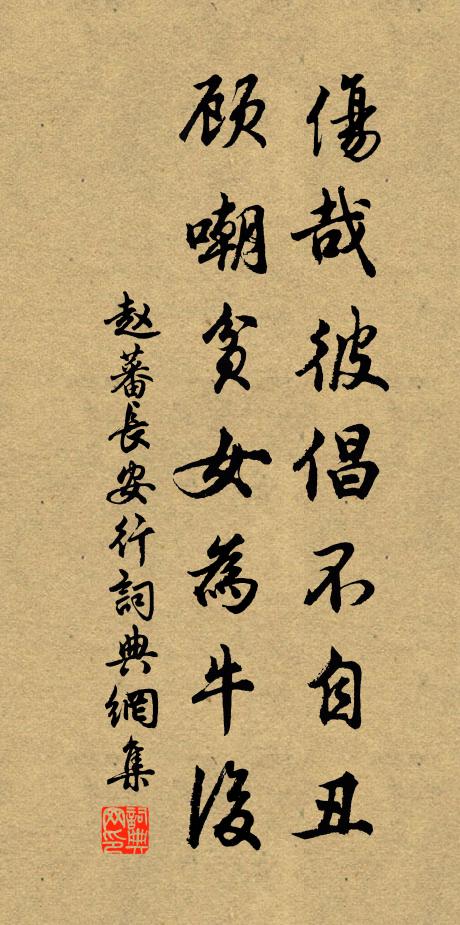 傷哉彼倡不自丑
顾嘲貧女為牛後
赵蕃長安行詞典網集
詞典網印